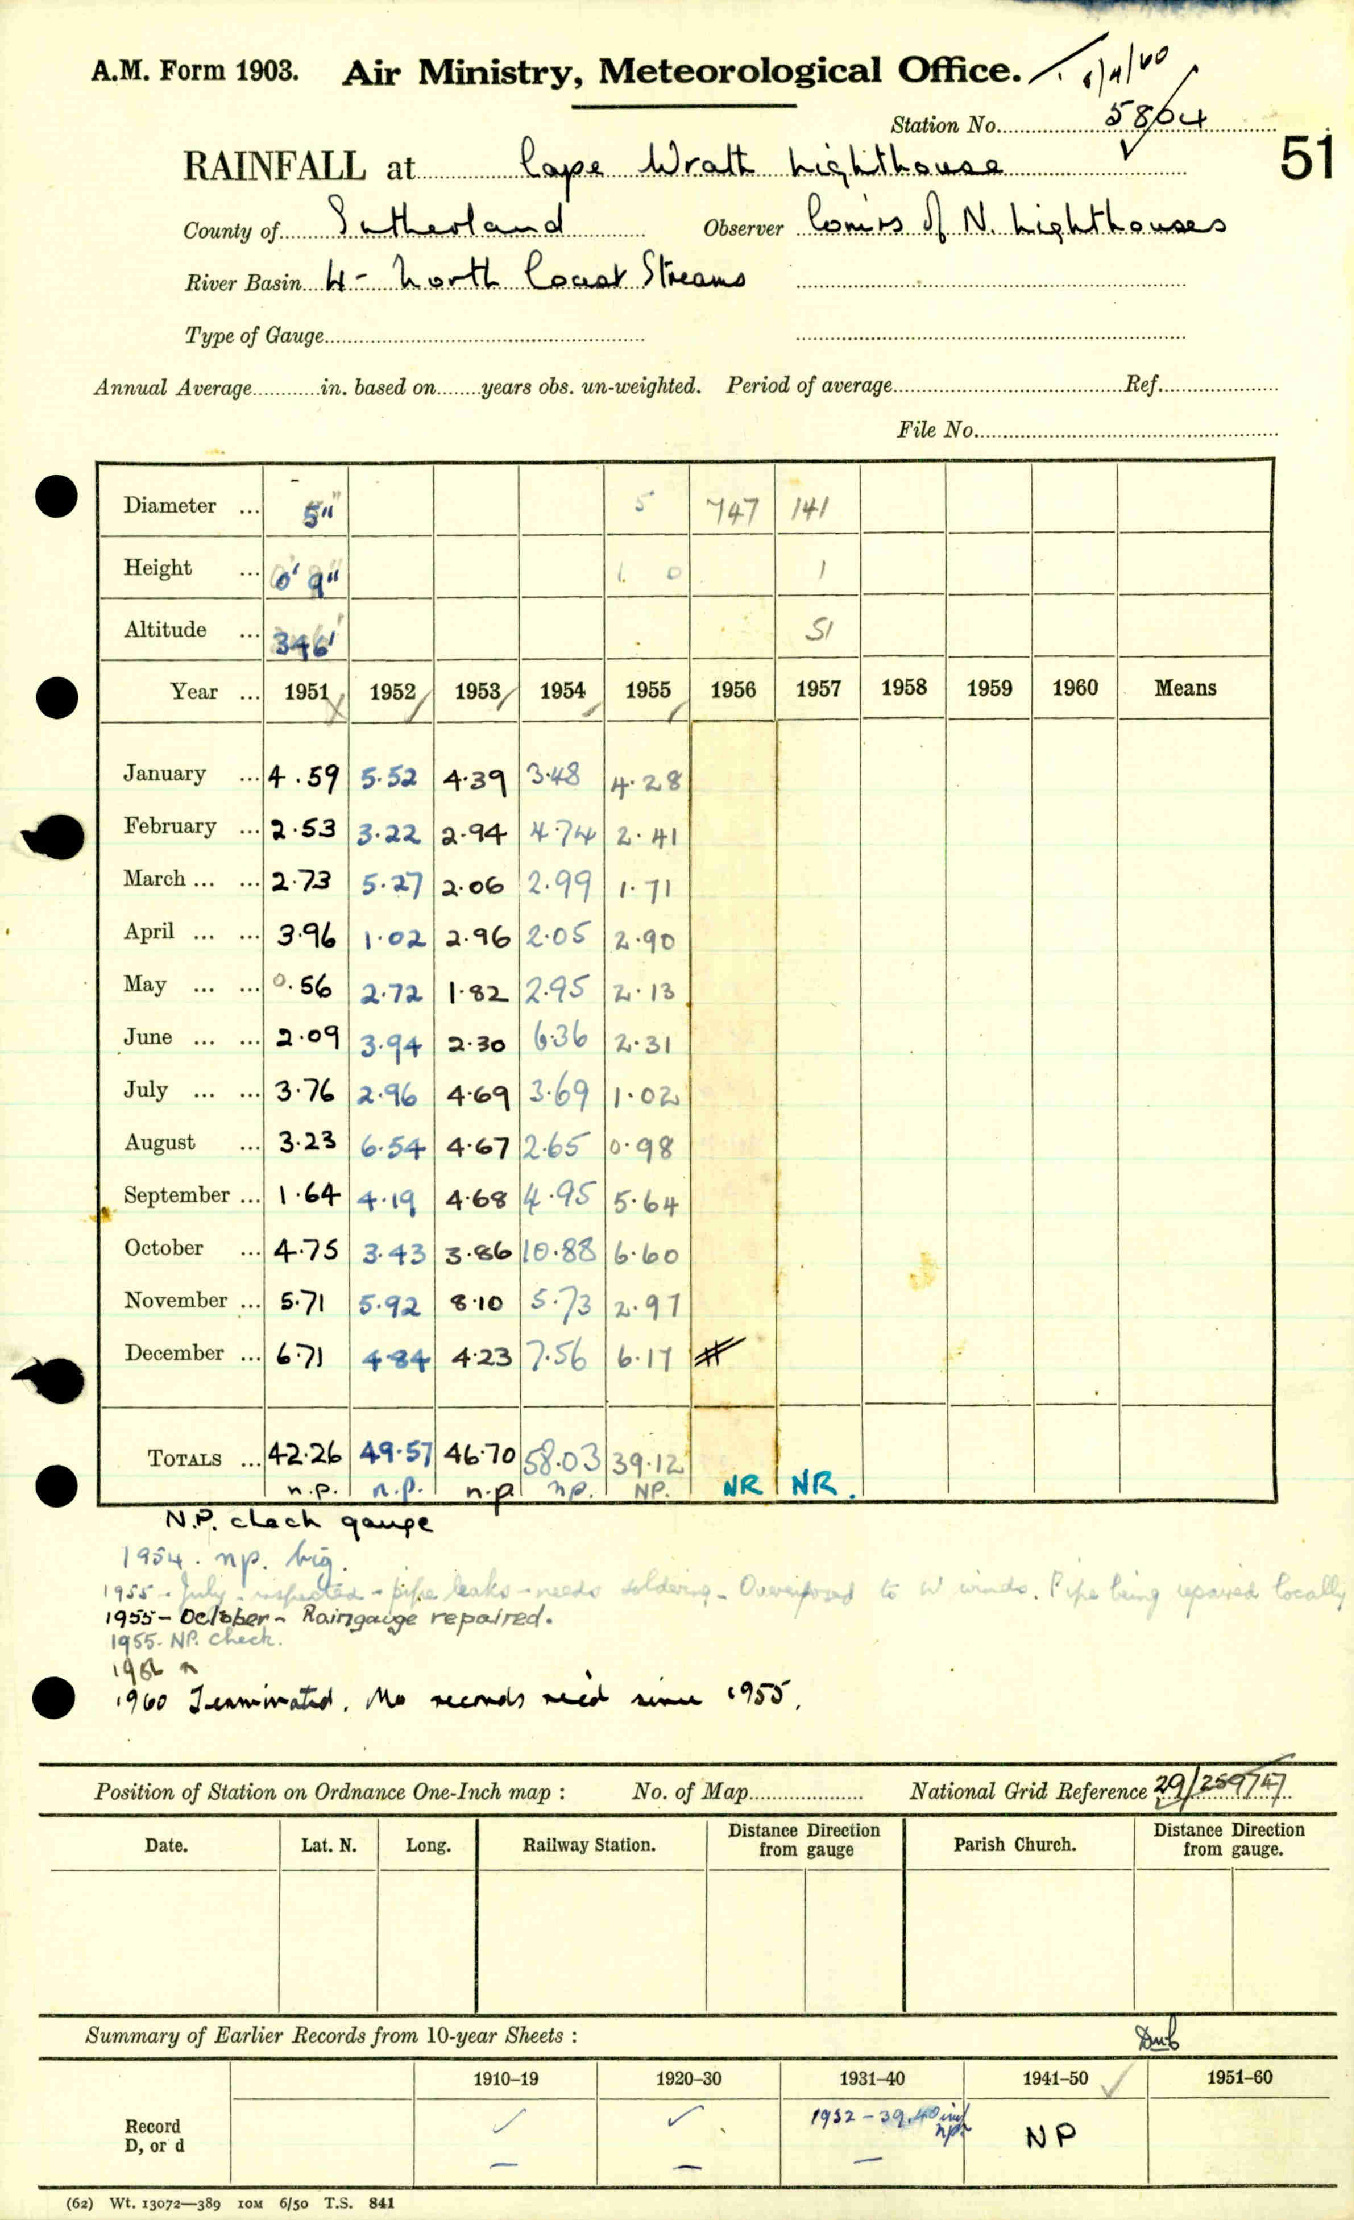 A.M. Form 1903. Air Ministry, Meteorological Office.
Station No. 5804
51
RAINFALL at Cape Wrath Lighthouse
County of Sutherland Observer Comrs of N. Lighthouses
River Basin 4 - North Coast Streams
Type of Gauge
Annual Average in. based on years obs. un-weighted. Period of average Ref.
File No.
Diameter ... 5" 5 747 141
Height ... 0' 9" 1 0 1
Altitude ... 346' 51
Year ... 1951 1952 1953 1954 1955 1956 1957 1958 1959 1960 Means
January ... 4.59 5.52 4.39 3.48 4.28
February ... 2.53 3.22 2.94 4.74 2.41
March ... ... 2.73 5.27 2.06 2.99 1.71
April ... ... 3.96 1.02 2.96 2.05 2.90
May ... ... 0.56 2.72 1.82 2.95 2.13
June ... ... 2.09 3.94 2.30 6.36 2.31
July ... ... 3.76 2.96 4.69 3.69 1.02
August ... 3.23 6.54 4.67 2.65 0.98
September ... 1.64 4.19 4.68 4.95 5.64
October ... 4.75 3.43 3.86 10.88 6.60
November ... 5.71 5.92 8.10 5.73 2.97
December ... 6.71 4.84 4.23 7.56 6.17
TOTALS ... 42.26 49.57 46.70 58.03 39.12
n.p. n.p. n.p np. NP. NR NR.
N.P. check gauge
1954. np. big.
1955 - July - inspected - pipe leaks - needs soldering - Overexposed to W winds. Pipe being repaired locally
1955 - October - Raingauge repaired.
1955. NP. Check.
1960 Terminated. No records rec'd since 1955.
Position of Station on Ordnance One-Inch map : No. of Map National Grid Reference 29/259747
Date. Lat. N. Long. Railway Station. Distance from Direction gauge Parish Church. Distance from Direction gauge.
Summary of Earlier Records from 10-year Sheets :
1910-19 1920-30 1931-40 1941-50 1951-60
Record D, or d 1932 - 39, 40 np NP
(62) Wt. 13072—389 10M 6/50 T.S. 841